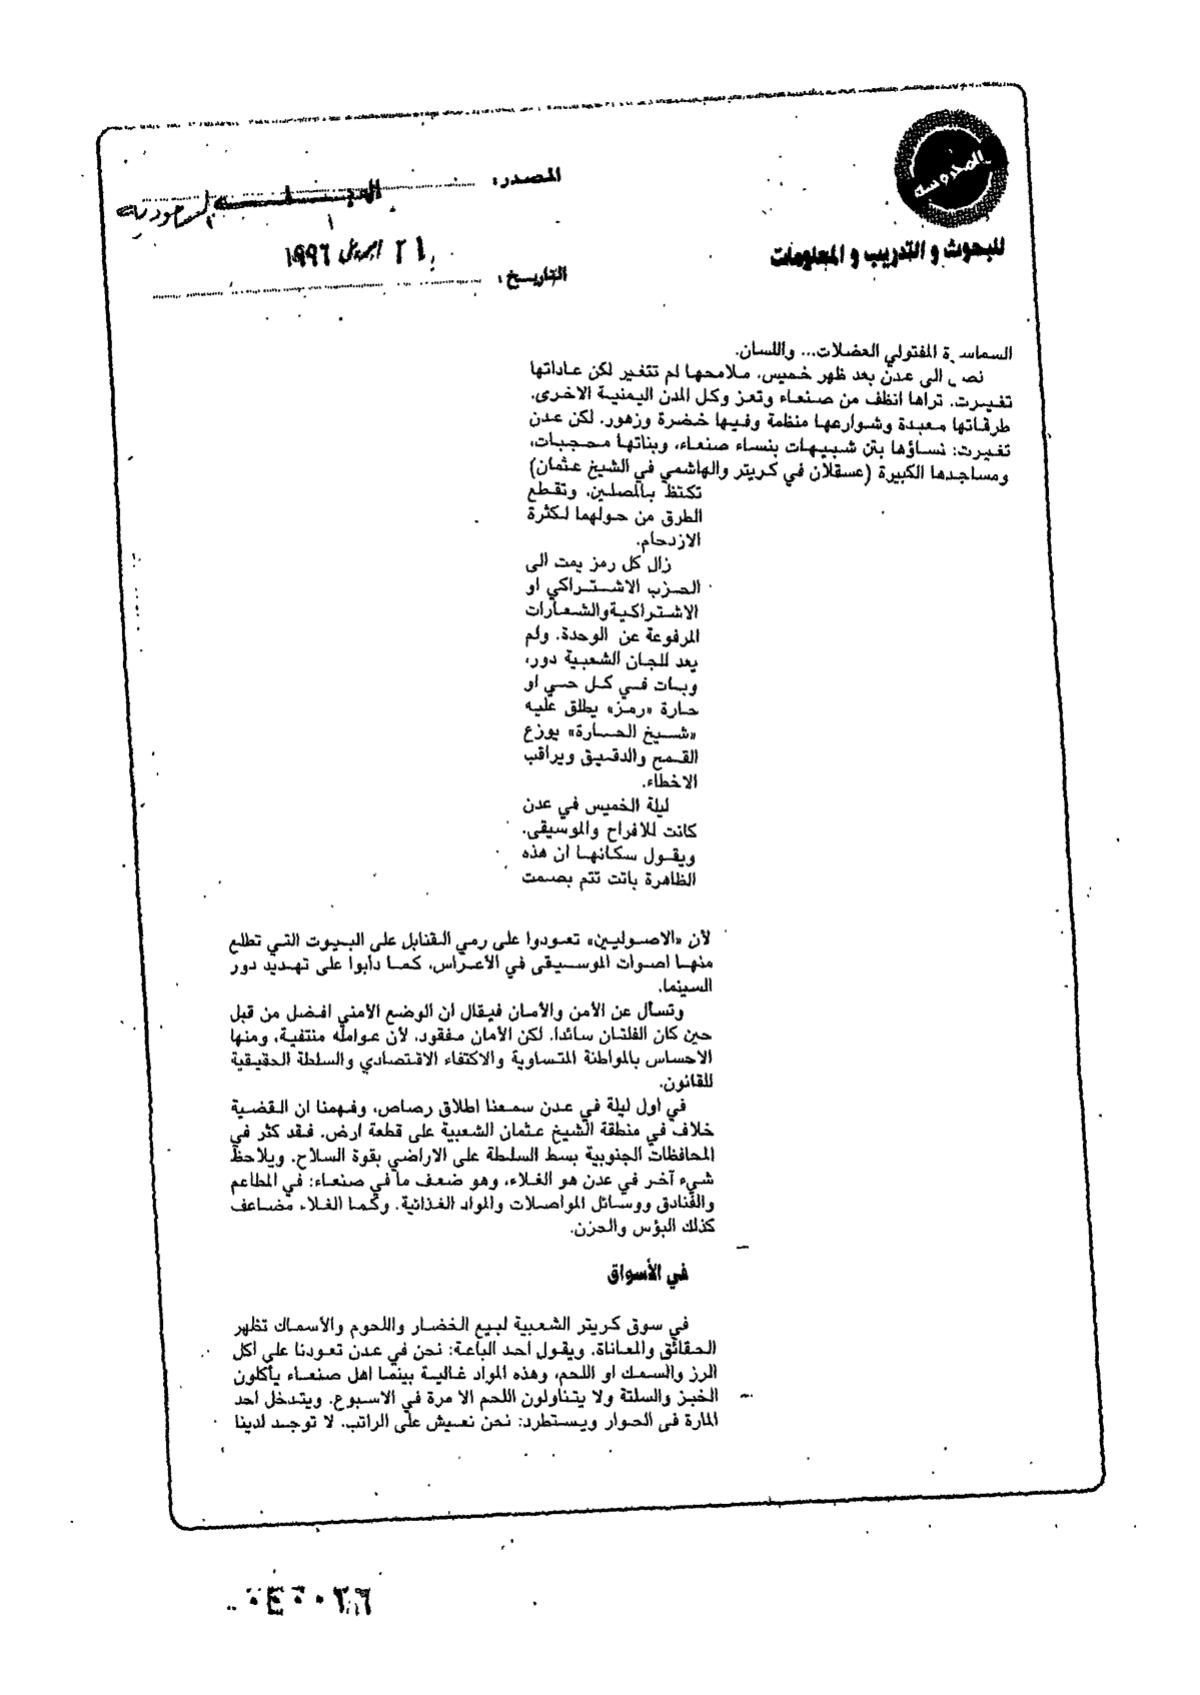 المحروسة
للبحوث و التدريب و المعلومات
المصدر:
المجلة السعودية
٢١ ابريل ١٩٩٦
التاريخ:
السماسرة المفتولي العضلات... واللسان.
نصل الى عدن بعد ظهر خميس، ملامحها لم تتغير لكن عاداتها
تغيرت. تراها انظف من صنعاء وتعز وكل المدن اليمنية الاخرى.
طرقاتها معبدة وشوارعها منظمة وفيها خضرة وزهور. لكن عدن
تغيرت: نساؤها بتن شبيهات بنساء صنعاء، وبناتها محجبات،
ومساجدها الكبيرة (عسقلان في كريتر والهاشمي في الشيخ عثمان)
تكتظ بالمصلين، وتقطع
الطرق من حولهما لكثرة
الازدحام.
زال كل رمز يمت الى
الحزب الاشتراكي او
الاشتراكية والشعارات
المرفوعة عن الوحدة. ولم
يعد للجان الشعبية دور،
وبات في كل حي او
حارة «رمز» يطلق عليه
«شيخ الحارة» يوزع
القمح والدقيق ويراقب
الاخطاء.
ليلة الخميس في عدن
كانت للافراح والموسيقى.
ويقول سكانها ان هذه
الظاهرة باتت تتم بصمت
لأن «الاصوليين» تعودوا على رمي القنابل على البيوت التي تطلع
منها اصوات الموسيقى في الأعراس، كما دأبوا على تهديد دور
السينما.
وتسأل عن الأمن والأمان فيقال ان الوضع الأمني افضل من قبل
حين كان الفلتان سائدا. لكن الأمان مفقود، لأن عوامله منتفية، ومنها
الاحساس بالمواطنة المتساوية والاكتفاء الاقتصادي والسلطة الحقيقية
للقانون.
في اول ليلة في عدن سمعنا اطلاق رصاص، وفهمنا ان القضية
خلاف في منطقة الشيخ عثمان الشعبية على قطعة ارض. فقد كثر في
المحافظات الجنوبية بسط السلطة على الاراضي بقوة السلاح. ويلاحظ
شيء آخر في عدن هو الغلاء، وهو ضعف ما في صنعاء: في المطاعم
والفنادق ووسائل المواصلات والمواد الغذائية. وكما الغلاء مضاعف
كذلك البؤس والحزن.
في الأسواق
في سوق كريتر الشعبية لبيع الخضار واللحوم والأسماك تظهر
الحقائق والمعاناة. ويقول احد الباعة: نحن في عدن تعودنا على اكل
الرز والسمك او اللحم، وهذه المواد غالية بينما اهل صنعاء يأكلون
الخبز والسلتة ولا يتناولون اللحم الا مرة في الاسبوع. ويتدخل احد
المارة في الحوار ويستطرد: نحن نعيش على الراتب. لا توجد لدينا